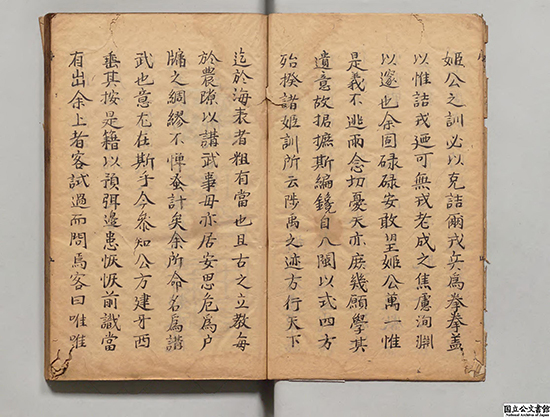 姬公之訓必以克詰爾戎兵為拳拳蓋
以惟詰戎廼可無戎老成之焦慮洵淵
以邃也余固碌碌安敢望姬公萬一惟
是義不逃兩念切憂天亦庶幾願學其
遺意故据摭斯編鐫自八閩以式四方
殆揆諸姬訓所云陟禹之迹方行天下
迄於海表者粗有當也且古之立教每
於農隙以講武事毋亦居安思危為戶
牖之綢繆不憚蚤計矣余所命名為講
武也意尤在斯乎今叅知公方建牙西
垂其按是籍以預弭邊患恢恢前識當
有出余上者客試過而問焉客曰唯唯
国立公文書館
National Archives of Japan